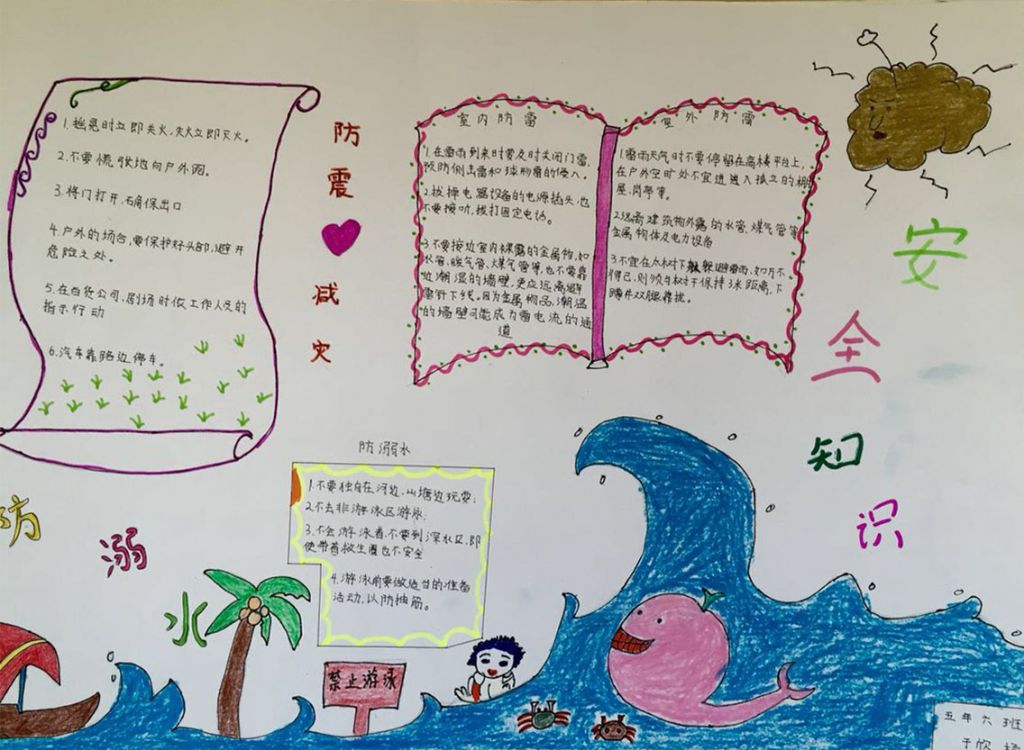 1.摇晃时立即关火,失火立即灭火。
2.不要慌
地向户外跑。
3.将门打开,确保出口
4.户外的场合,要保护好头部,避开
危险之处。
5.在百货公司、剧场时依工作人员的
指示行动
6.汽车靠路边停车。
防
震
减
灾
室内防雷
1.在雷雨到来时要及时关闭门窗,
预防侧击雷和球形雷的侵入。
2.拔掉电器设备的电源插头,也
不要接听,拨打固定电话。
3.不要接近室内裸露的金属物,如
水管、暖气管、煤气管等,也不要靠
近潮湿的墙壁,更应远离避
雷针下线。因为金属物品,潮湿
的墙壁可能成为雷电流的通
道
室外防雷
1.雷雨天气时不要停留在高楼平台上,
在户外空旷处不宜进进入孤立的棚
屋,岗亭等。
2.远离建筑物外露的水管、煤气管等
金属物体及电力设备
3.不宜在大树下躲避雷雨,如万不
得已,则须与树干保持3米距离,下
蹲并双腿靠拢。
安
全
知
识
防溺水
1.不要独自在河边、山塘边玩耍;
2.不去非游泳区游泳;
3.不会游泳者,不要到深水区,即
使带着救生圈也不安全
4.游泳前要做适当的准备
活动,以防抽筋。
防
溺
水
禁止游泳
五年六班
于欣